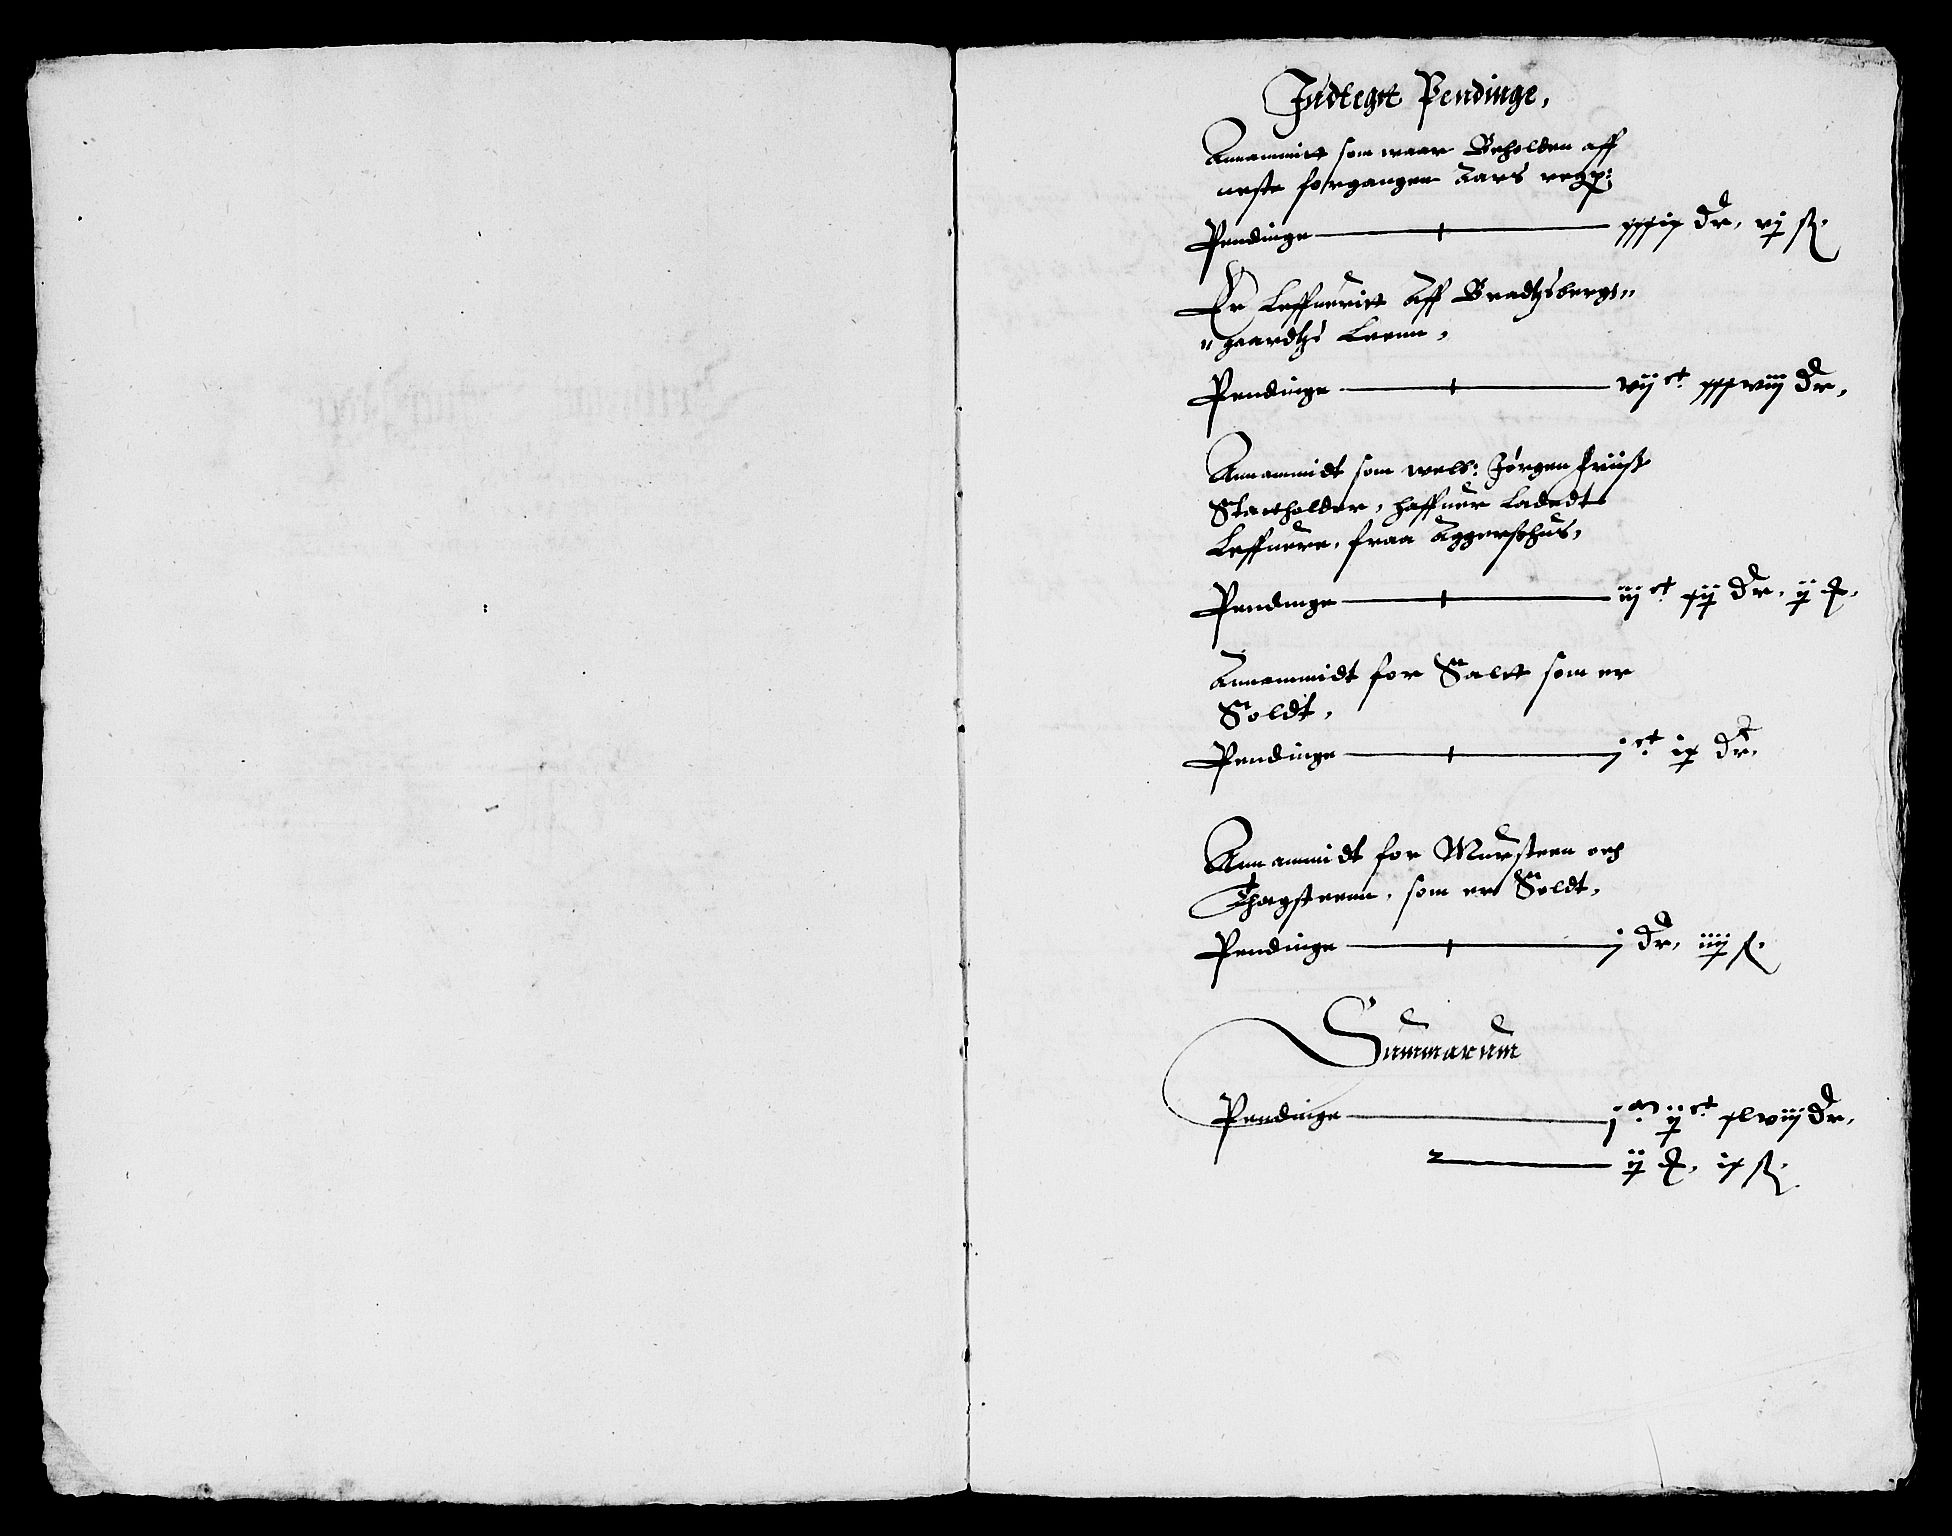 Indtegtt Pendinge,
Annammitt som waar Beholden aff
neste forgangen Aars regn:
Pendinge — xxxix dr. vj ß.
Er Leffueritt Aff Bradtzbergs„
„gaardtzs Leenn,
Pendinge — vij ct. xxxviij dr,
Annammidt som welb: Jørgen Friiß
Statholder, haffuer Ladedt
Leffuere, fraa Aggershus,
Pendinge — iij ct. xij dr. ij
Annammidt for Saltt som er
Soldt,
Pendinge — j ct. ix dr.
Annammidt for Mursteen och
Thagsteenn, som er Soldt,
Pendinge — j dr. iiij ß.
Summarum
Pendinge — j m. ij ct. xlviij dr,
ij ix ß.